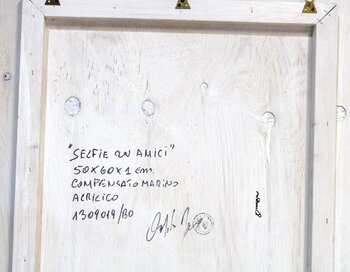 "SELFIE CON AMICI"
50X60X1 cm.
COMPENSATO MARINO
ACRILICO
1309019/BO